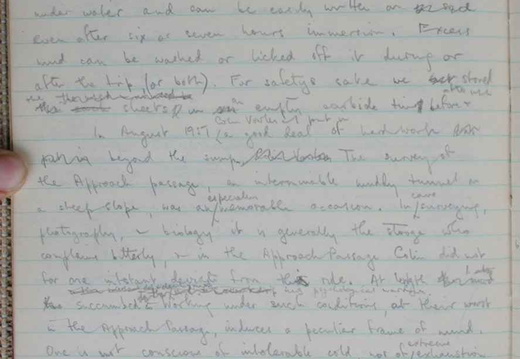 under water and can be easily written on
even after six or seven hours immersion. Excess
mud can be washed or licked off it during or
after the trip (or both). For safety's sake we stored
the sheets in empty carbide tins before & after use
Colin Vartial put in
In August 1957 a good deal of hard work
beyond the sump. The survey of
the Approach passage, an interminable muddy tunnel on
a steep slope, was an especially memorable occasion. In cave surveying,
photography, & biology it is generally the stooge who
complains bitterly, & in the Approach Passage Colin did not
for one instant deviate from this rule. At
succumbed working under such conditions, at their worst
in the Approach Passage, induces a peculiar frame of mind.
One is not conscious of intolerable cold nor of extreme exhaustion